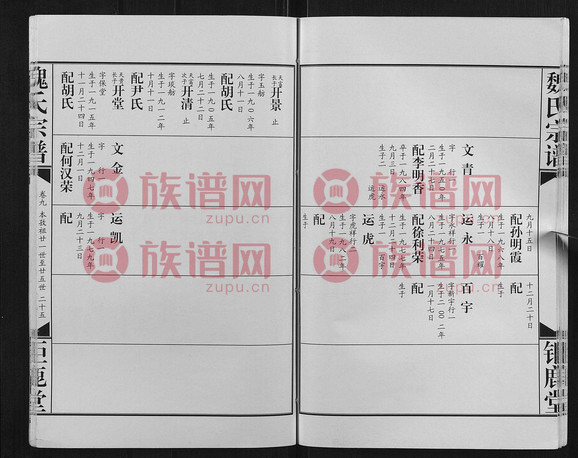 魏氏宗谱
钜鹿堂
九月十五日
配孙明霞
生于一九六八年
八月八日
生一 百楣
运永
字永祥行一
生于一九七五年
二月二十四日
生一 百宇
配徐利荣
生于一九七七年
十二月十四日
运虎
字虎祥行二
生于一九八二年
八月十九日
配
生于
十二月二十日
配
生于
百宇
字新宇行一
生于二〇〇二年
一月十七日
配
生于
文青
字 行一
生于一九五〇年
二月二十七日
配李明香
卒于一九八四年
九月三日
生于二 运永 运虎
天富长子 开景 止
字玉舫
生于一九〇六年
八月十一日
配胡氏
天富次子 开清 止
字琰舫
生于一九〇五年
七月二十二日
配尹氏
生于一九一二年
十月十一日
天贵长子 开堂
字保堂
生于一九一五年
十一月二十四日
配胡氏
文金
字 行一
生于一九四七年
十二月一日
配何汉荣
运凯
字 行一
生于一九七九年
九月二十三日
配
魏氏宗谱
卷九 本敦祖廿一世至廿五世 二十五
巨鹿堂
族谱网
zupu.cn
族谱网
zupu.cn
族谱网
zupu.cn
族谱网
zupu.cn